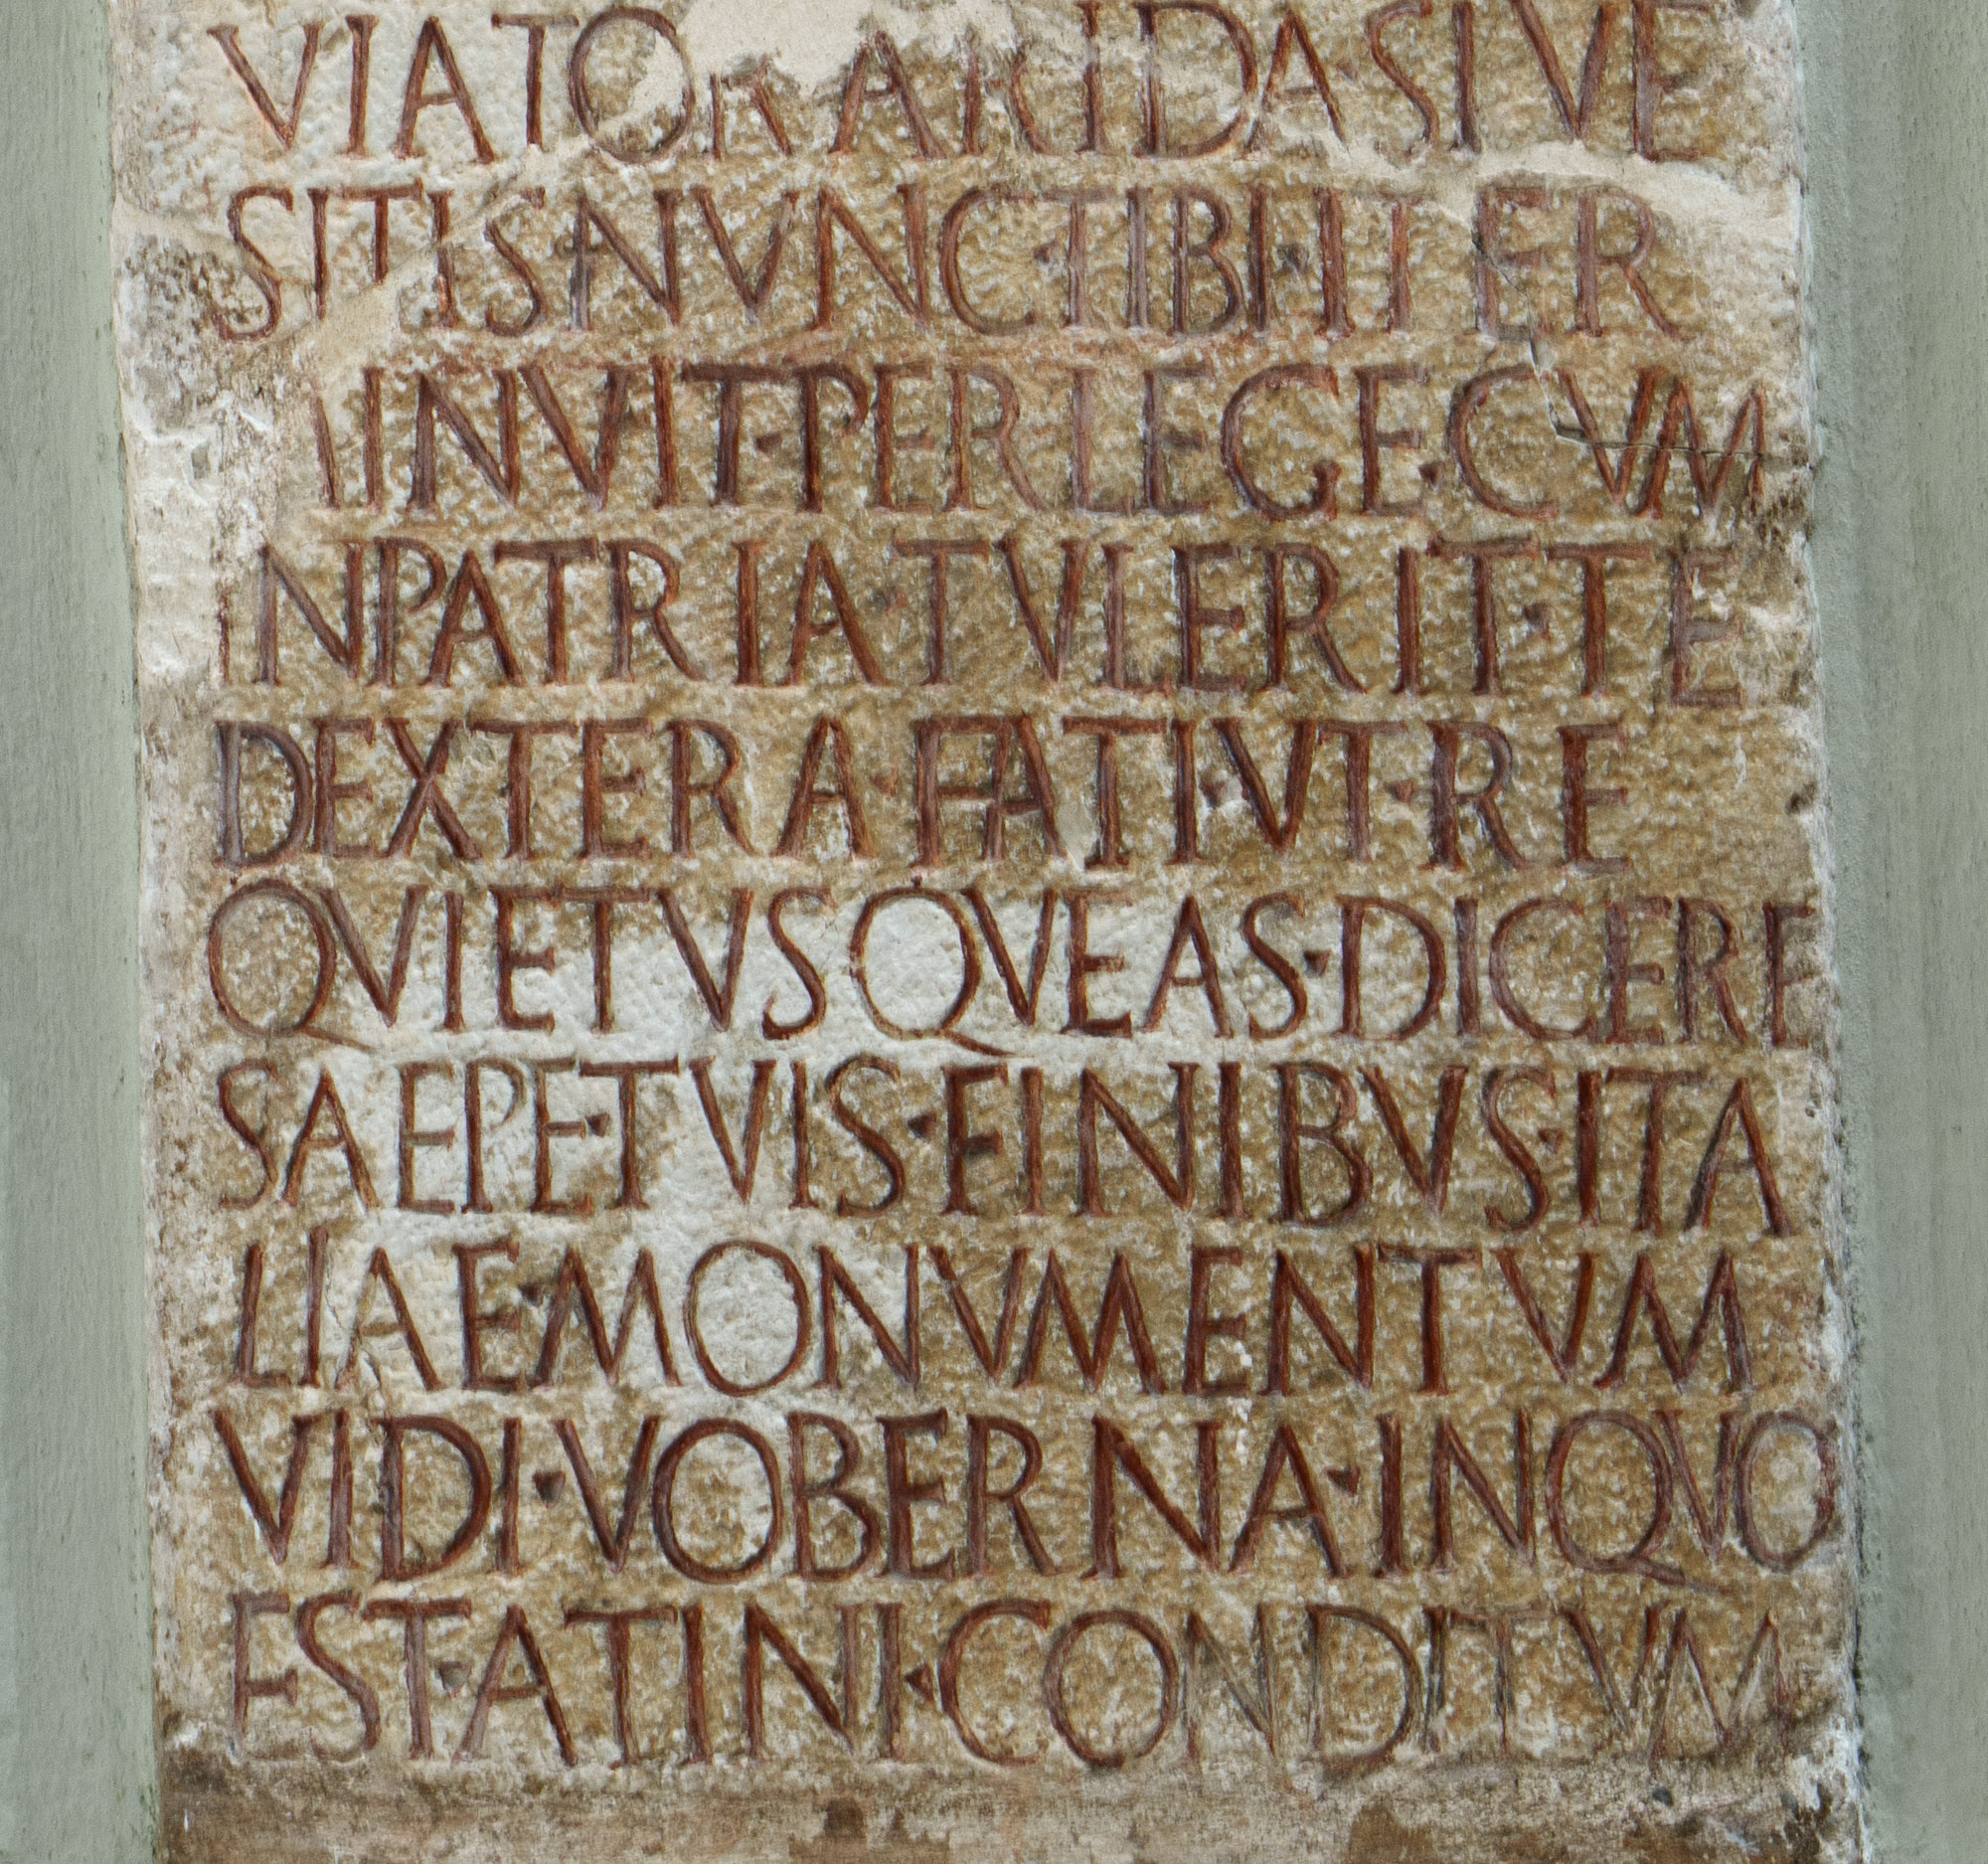 VIATOR ARIDA·SIVE
SITIS NVNC·TIBI·ITER
INVIT·PERLEGE·CVM
IN PATRIA·TVLERIT·TE
DEXTERA·FATI·VT·RE
QVIETVS QVEAS·DICERE
SAEPE·TVIS·FINIBVS·ITA
LIAE·MONVMENTVM
VIDI·VOBERNA·IN QVO
EST·ATINI·CONDITVM